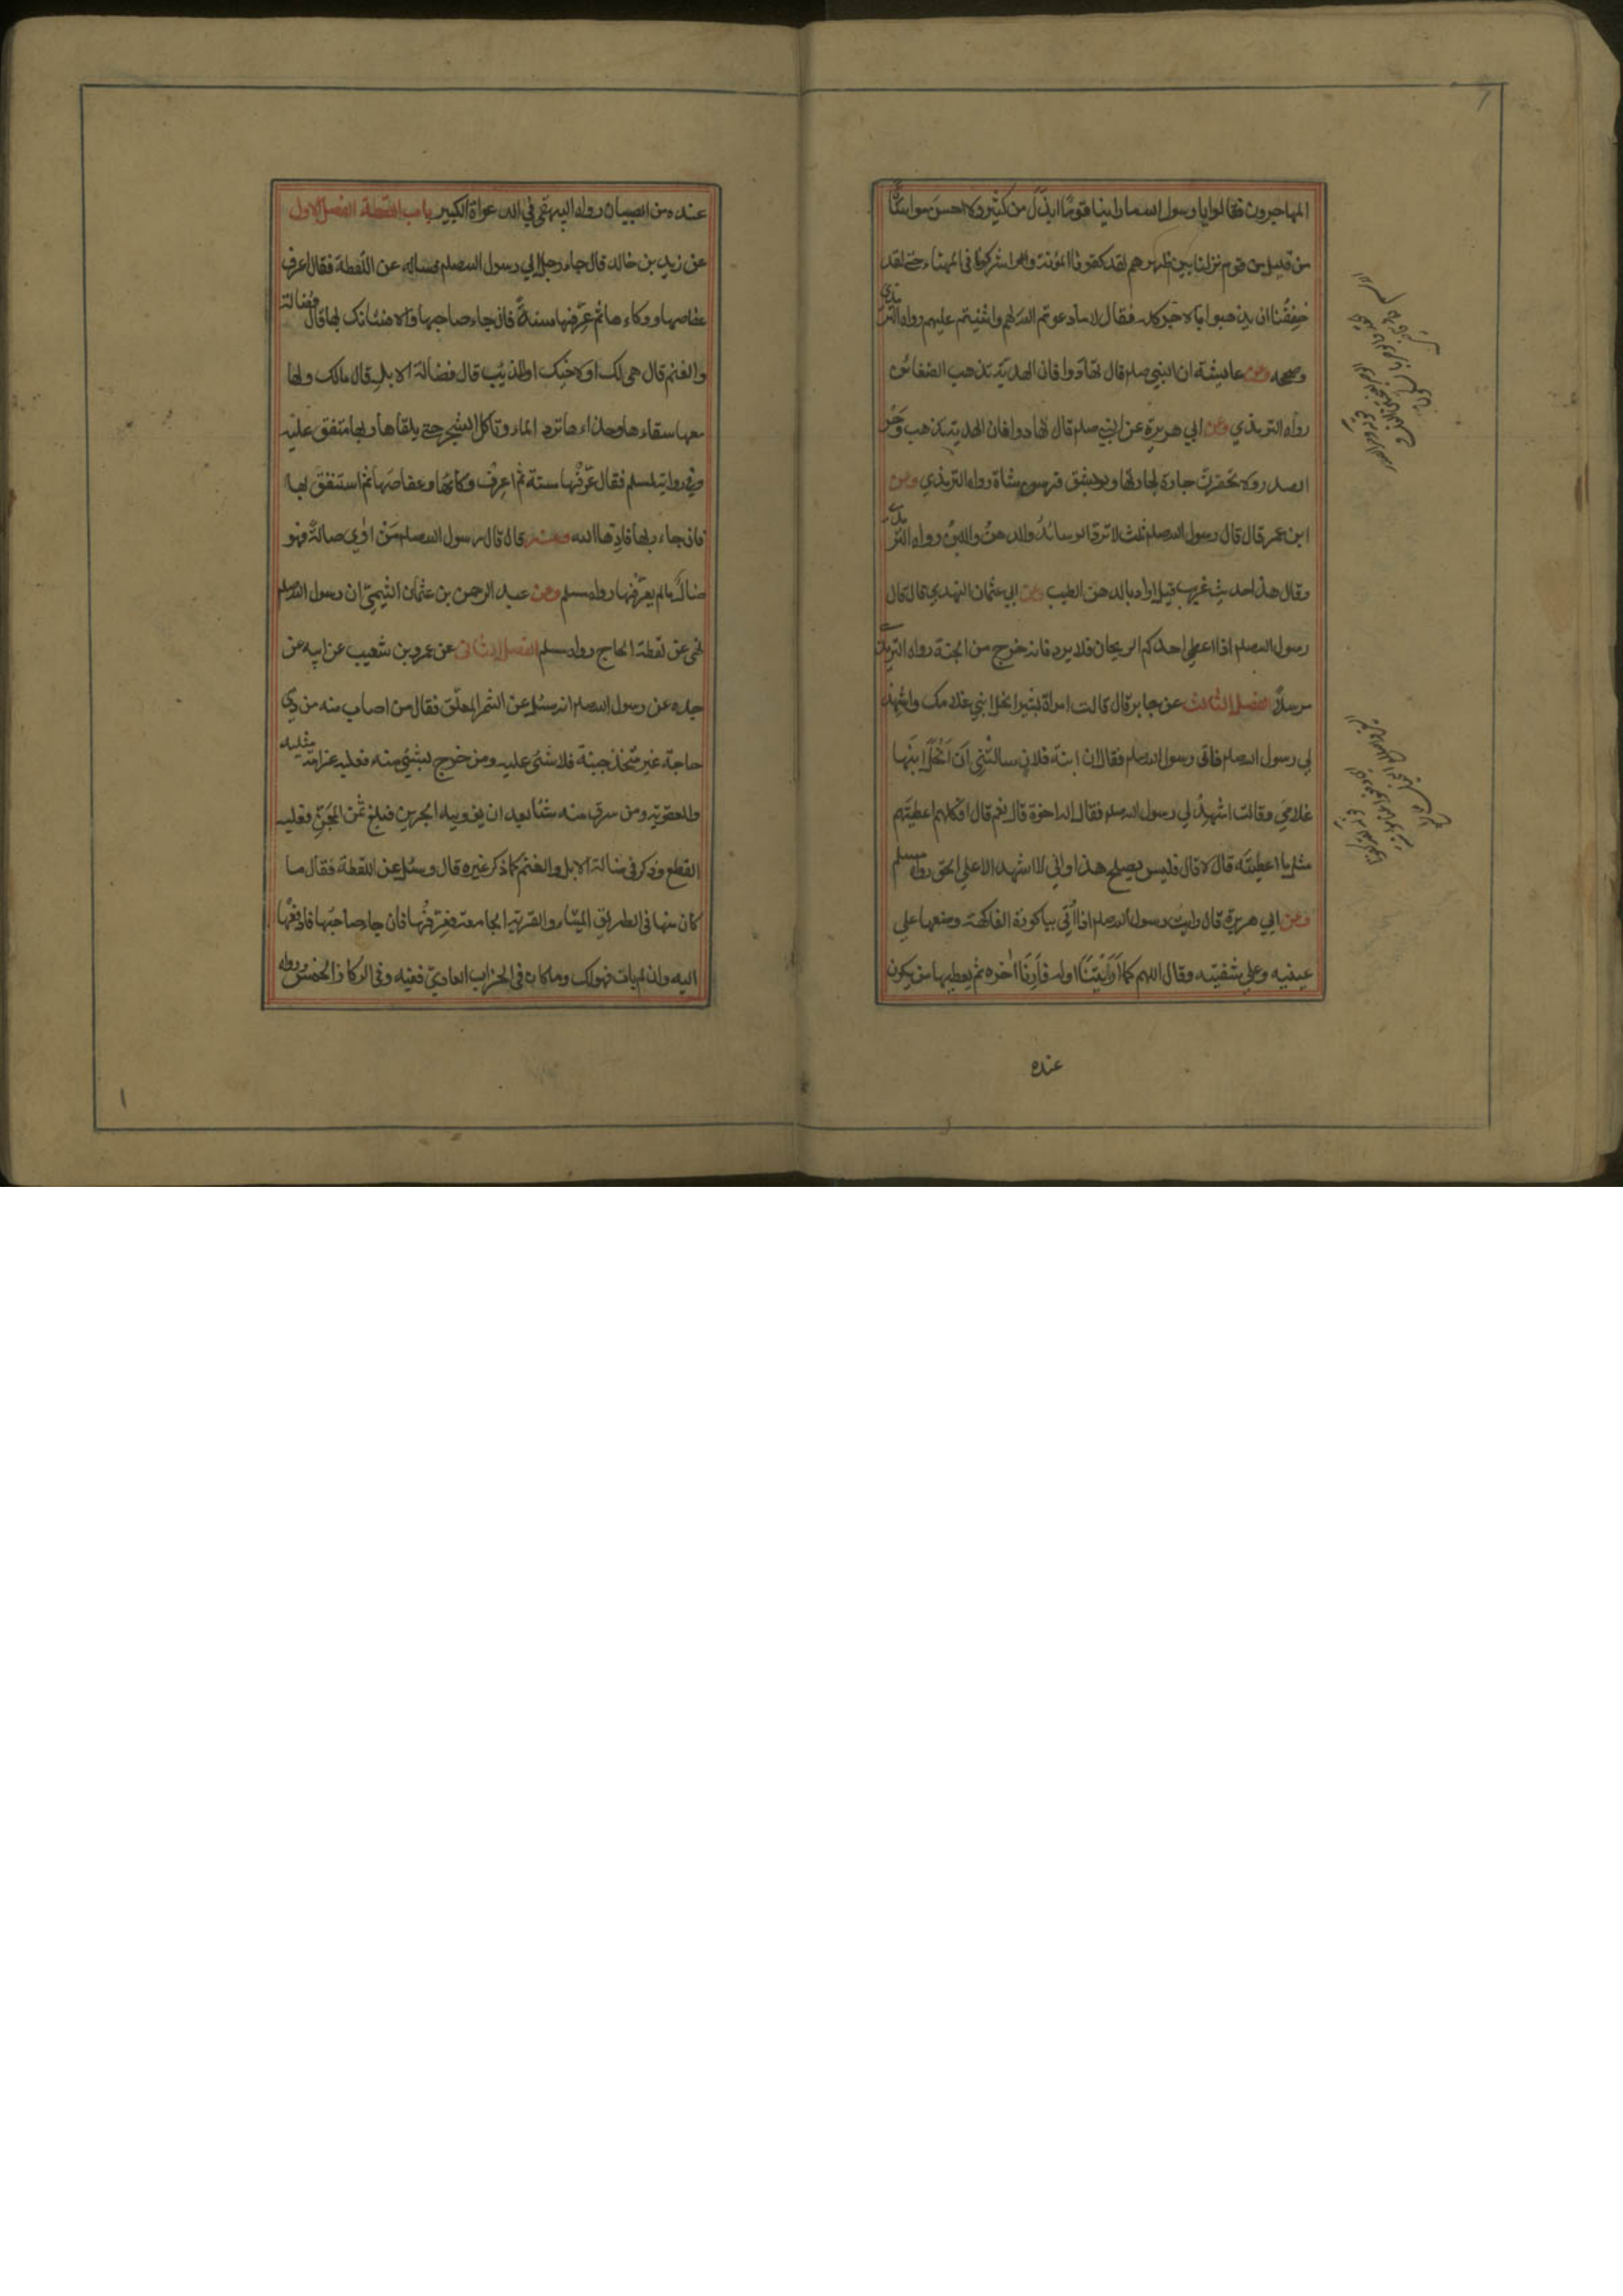 المهاجرون فقالوا يا رسول الله ما راينا قوما ابذل من كثير ولا احسن مواساة
من قليل من قوم نزلنا بين ظهرهم لقد كفونا المؤنة واشركونا في المهناء حتى لقد
خفنا ان يذهبوا بالاجر كله فقال لا ما دعوتم الله لهم واثنيتم عليهم رواه الترمذي
وصححه وعن عايشة ان النبي صلم قال تهادوا فان الهدية تذهب الضغائن
رواه الترمذي وعن ابي هريرة عن النبي صلم قال تهادوا فان الهدية تذهب وحر
الصدر ولا تحقرن جارة لجارتها ولو بشق فرسن شاة رواه الترمذي وعن
ابن عمر قال قال رسول الله صلم ثلث لا ترد الوسائد والدهن واللبن رواه الترمذي
وقال هذا حديث غريب قيل اراد بالدهن الطيب وعن ابي عثمان النهدي قال قال
رسول الله صلم اذا اعطي احدكم الريحان فلا يرده فانه خرج من الجنة رواه الترمذي
مرسلا الفصل الثالث عن جابر قال قالت امراة بشير انحل ابني غلامك واشهد
لي رسول الله صلم فاتى رسول الله صلم فقال ان ابنة فلان سالتني ان انحل ابنها
غلامي وقالت اشهد لي رسول الله صلم فقال اله اخوة قال نعم قال افكلهم اعطيتهم
مثل ما اعطيته قال لا قال فليس يصلح هذا واني لا اشهد الا على الحق رواه مسلم
وعن ابي هريرة قال رايت رسول الله صلم اذا اتي بباكورة الفاكهة وضعها على
عينيه وعلى شفتيه وقال اللهم كما اريتنا اوله فارنا اخره ثم يعطيها من يكون
عنده
عنده من الصبيان رواه البيهقي في الدعوات الكبير باب اللقطة الفصل الاول
عن زيد بن خالد قال جاء رجل الي رسول الله صلم فساله عن اللقطة فقال اعرف
عفاصها ووكاءها ثم عرفها سنة فان جاء صاحبها والا فشانك بها قال فضالة
والغنم قال هي لك او لاخيك او للذئب قال فضالة الابل قال مالك ولها
معها سقاءها وحذاءها ترد الماء وتاكل الشجر حتى يلقاها ربها متفق عليه
وفي رواية لمسلم فقال عرفها سنة ثم اعرف وكائها وعفاصها ثم استنفق بها
فان جاء ربها فادها اليه وعنه قال قال رسول الله صلم من اوي ضالة فهو
ضال ما لم يعرفها رواه مسلم وعن عبد الرحمن بن عثمان التيمي ان رسول الله صلم
نهى عن لقطة الحاج رواه مسلم الفصل الثاني عن عمرو بن شعيب عن ابيه عن
جده عن رسول الله صلم انه سئل عن الثمر المعلق فقال من اصاب منه من ذي
حاجة غير متخذ خبنة فلا شئ عليه ومن خرج بشئ منه فعليه غرامة مثليه
والعقوبة ومن سرق منه شئا بعد ان يؤويه الجرين فبلغ ثمن المجن فعليه
القطع وذكر في ضالة الابل والغنم كما ذكر غيره قال وسئل عن اللقطة فقال ما
كان منها في الطريق الميتاء والقرية الجامعة فعرفها سنة فان جاء صاحبها فادفعها
اليه وان لم يات فهو لك وما كان في الخراب العادي ففيه وفي الركاز الخمس رواه